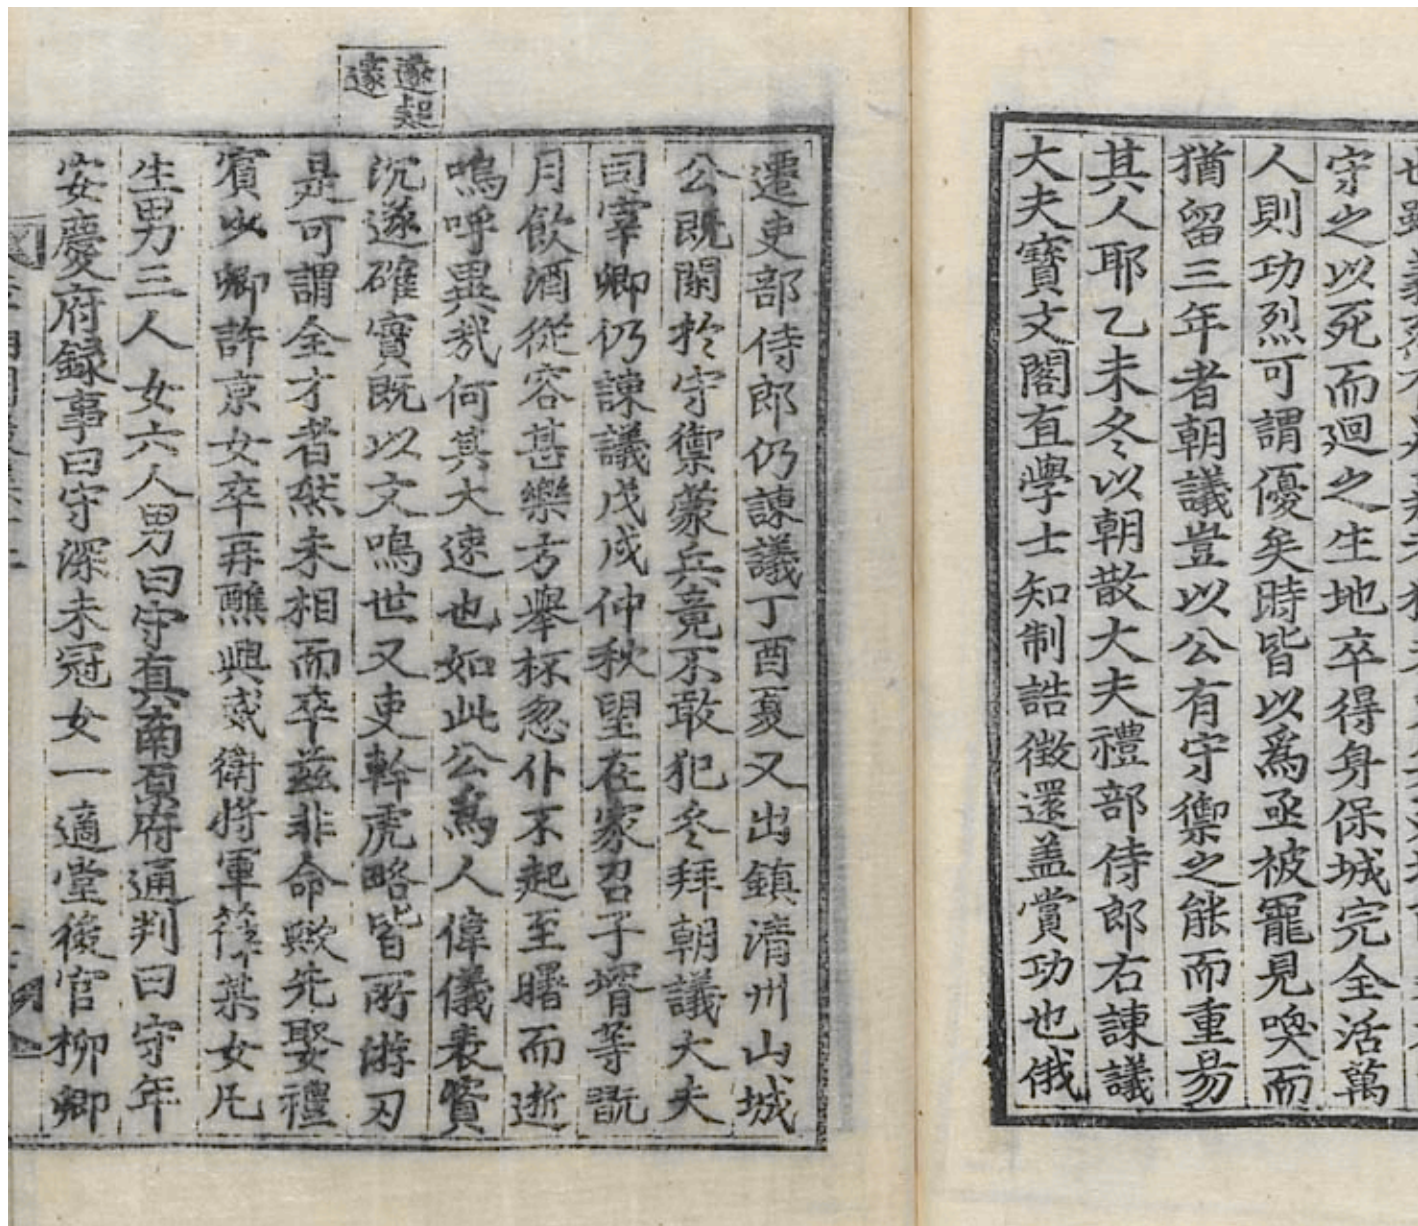 守之以死而迴之生地卒得身保城完全活萬
人則功烈可謂優矣時皆以爲亟被寵見喚而
猶留三年者朝議豈以公有守禦之能而重易
其人耶乙未冬以朝散大夫禮部侍郎右諫議
大夫寶文閣直學士知制誥徵還盖賞功也俄
遷吏部侍郎仍諫議丁酉夏又出鎮清州山城
公既閑於守禦蒙兵竟不敢犯冬拜朝議大夫
司宰卿仍諫議戊戌仲秋望在家召子壻等翫
月飮酒從容甚樂方擧杯忽仆不起至曙而逝
嗚呼異哉何其大速也如此公爲人偉儀表資
沉邃確實既以文鳴世又吏幹虎略皆所游刃
是可謂全才者然未相而卒玆非命歟先娶禮
賓少卿許京女卒再醮興威衛將軍某女凡
生男三人女六人男曰守真南原府通判曰守年
安慶府録事曰守深未冠女一適堂後官柳卿
邃起
邃